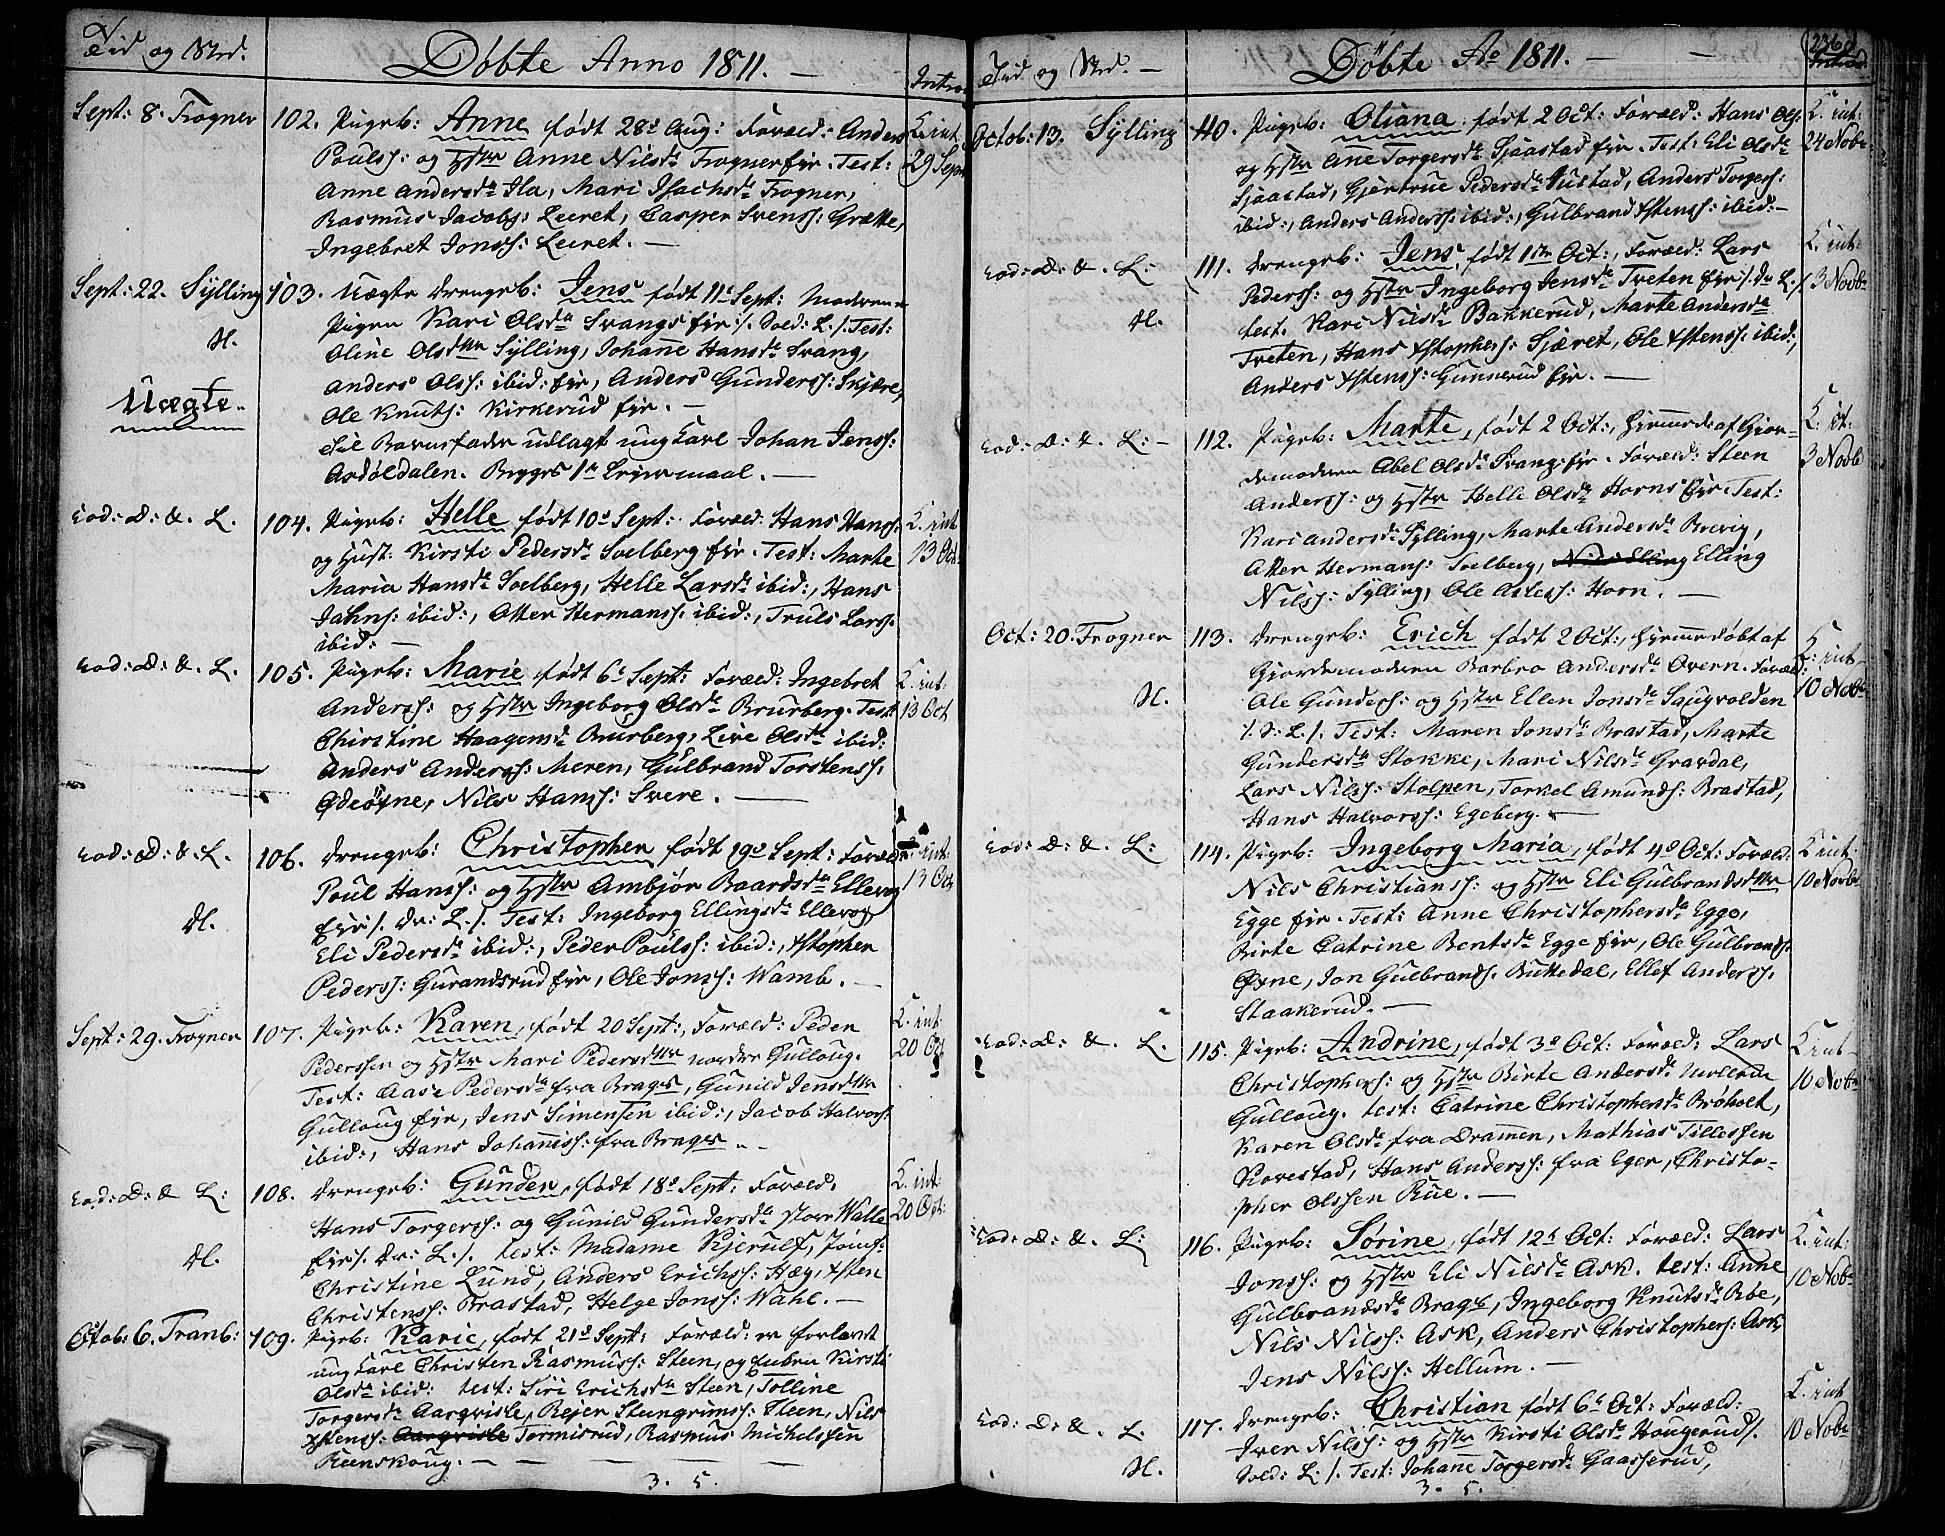 Tid og Sted.
Døbte Anno 1811. —
Introd.
Sept: 8. Trogner
102. Pigeb: Anne født 28d Aug: Foræld: Anders
Pouls: og Hstr Anne Nilsd. Trogner Eyr. Test:
Anne Andersd. Ila, Mari Isachsd. Trogner,
Rasmus Jacobs: Leeret, Casper Svens: Grætte,
Ingebret Jons: Leeret. —
K. int
29 Sept
Sept: 22. Sylling
N.
Uægte..
103. Uægte Drengeb: Jens født 11t Sept: Moderen
Pigen Kari Olsd. Svangs Eyr :/. Sold: L./. Test:
Oline Olsdttr Sylling, Johanne Hansd. Svang,
Anders Ols: ibid: Eyr, Anders Gunders: Skjære,
Ole Knuts: Kirkerud Eyr. —
Til Barnefader udlagt ung Karl Johan Jens:
Asdøldalen. Begges 1te Leiermaal. —
Eod: D: &. L.
104. Pigeb: Helle født 10d Sept: Foræld: Hans Hans:
og Hust: Kirsti Pedersd. Solberg Eyr. Test: Marte
Maria Hansd. Solberg, Helle Larsd. ibid:, Hans
Jahns: ibid:, Otter Hermans: ibid:, Truls Lars:
ibid: —
K. int
13 Oct
Eod: D: &. L.
105. Pigeb: Marie født 6t Sept: Foræld: Ingebret
Anders: og Hstr Ingeborg Olsd. Brurberg. Test:
Christine Haagensd. Brurberg, Live Olsd. ibid:
Anders Anders: Meren, Gulbrand Torstens:
Odeøyne, Nils Hans: Svere. —
K. int:
13 Oct
Eod: D: & L.
N.
106. Drengeb: Christopher født 19d Sept: Foræld:
Poul Hans: og Hstr Ambjør Baardsd. Ellevog
Eyr /. Dr: L./. Test: Ingeborg Ellingsd. Ellevog
Eli Pedersd. ibid:, Peder Pouls: ibid:, Xstopher
Peders: Gurandsrud Eyr, Ole Jons: Wamb. —
int:
13 Oct
Sept: 29. Trogner
107. Pigeb: Karen, født 20 Sept:, Foræld: Peder
Pederssen og Hstr Mari Pedersdttr nordre Gulloug.
Test: Aase Pedersd. fra Brages, Gunild Jensdttr
Gulloug Eyr, Jens Simensen ibid:, Jacob Halvors:
ibid:, Hans Johannis: fra Brages..
K. int:
20 Oct
Eod: D: & L:
N.
108. Drengeb: Gunder, født 18d Sept: Foræld:
Hans Torgers: og Gunild Gundersd. store Walle
Eyr /. Dr: L./. Test: Madame Kjerulf, Jomf:
Christine Lund, Anders Erichs: Hæg, Xsten
Christens: Brastad, Helge Jons: Wahl. —
K. int:
20 Oct:
Octob: 6. Tranb:
109. Pigeb: Karie, født 21d Sept: Foræld: er forlovet
ung Karl Christen Rasmus: Steen, og Kirsti
Olsd. ibid: Test: Siri Erichsd. Steen, Tolline
Torgersd. Aargvisle, Rejer Stengrims: Steen, Nils
Xstens: Aargvisle Tormisrud, Rasmus Michelssen
Renskoug. — — — — —
3. 5.
Tid og Sted. —
Døbte Ao 1811. — —
236
Introd.
Octob: 13. Sylling
110. Pigeb: Oliana født 2 Oct: Foræld: Hans Ols:
og Hstr Ane Torgersd. Sjaastad Eyr. Test: Eli Olsd.
Sjaastad, Gjertrue Pedersd. Austad, Anders Torgers:
ibid:, Anders Anders: ibid:, Gulbrand Xstens: ibid: —
K. int:
24 Novb
Eod: D: &. L:
N.
111. Drengeb: Jens, født 1ste Oct:, Foræld: Lars
Peders: og Hstr Ingeborg Jensd. Treten Eyr /. Dr L./.
Test. Kari Nilsd. Bakkerud, Marte Andersd.
Treten, Hans Xstophers: Sjæret, Ole Xstens: ibid:,
Anders Xstens: Gunnerud Eyr. —
K. int:
3 Novb
Eod: D: &. L: —
112. Pigeb: Marte, født 2 Oct:, hjemmed: af Gjor-
demoderen Abel Olsd. Svangs Eyr. Foræld: Steen
Anders: og Hstr Helle Olsd. Horns Eyr. Test:
Kari Andersd. Sylling, Marte Andersd. Brevig,
Otter Hermans: Solberg, Nils Elling Elling
Nils: Sylling, Ole Asles: Horn. —
K. it:
3 Novb
Oct: 20. Trogner
N.
113. Drengeb: Erich født 2 Oct:, hjemmedøbt af
Gjordemoderen Barbro Andersd. Overn. Foræld:
Ole Gunders: og Hstr Ellen Jonsd. Saugvolden
/. S: L./. Test: Maren Jonsd. Brastad, Marte
Gundersd. Stokke, Mari Nilsd. Gravdal,
Lars Nils: Stolpen, Torkel Amunds: Brastad,
Hans Halvors: Egeberg. —
K: int
10 Novb
Eod: D: &. L:
114. Pigeb: Ingeborg Maria, født 4d Oct: Foræld:
Nils Christians: og Hstr Eli Gulbrandsdttr
Egge Eyr. Test: Anne Christophersd. Egge,
Birte Catrine Bentsd. Egge Eyr, Ole Gulbrands:
Øxne, Jon Gulbrands. Buttedal, Ellef Anders:
Staakerud. —
K int:
10 Novb
Eod: D: &. L.
115. Pigeb: Andrine, født 3d Oct: Foræld: Lars
Christophers: og Hstr Birte Andersd. mellem
Gulloug. Test: Catrine Christophersd. Brøholt,
Karen Olsd. fra Dramen, Mathias Tillessen
Kovestad, Hans Anders: fra Eger, Christo-
pher Olssen Rue. —
K int —
10 Novb
Eod: D: &. L:
116. Pigeb: Sørine, født 12t Oct: Foræld: Lars
Jons: og Hstr Eli Nilsd. Ask. Test: Anne
Gulbrandsd. Brages, Ingeborg Knutsd. Røe,
Nils Nils: Ask, Anders Christophers: Ask,
Jens Nils: Hellum. —
K. int:
10 Novb
Eod: D: &. L.
N.
117. Drengeb: Christian født 6t Oct: Foræld:
Iver Nils: og Hstr Kirsti Olsd. Hougerud /.
Sold: L:/. Test: Johanne Torgersd. Gaasserud,
K. int
10 Novb
3. 5.